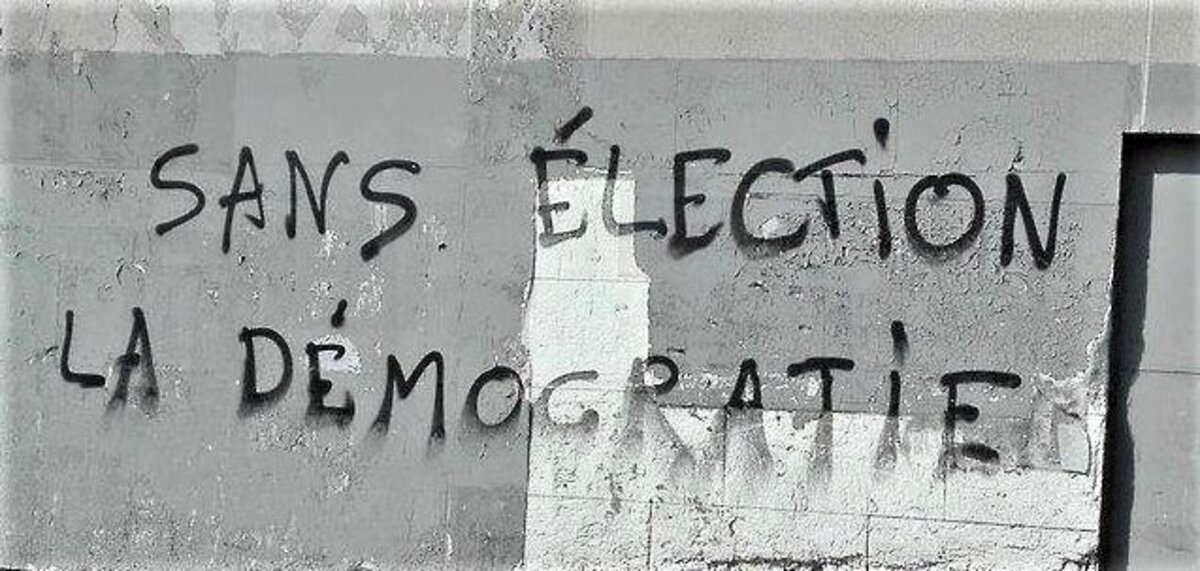 SANS ÉLECTION
LA DÉMOCRATIE